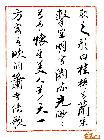 歌之歌曰桂棹兮蘭槳
擊空明兮泝流光渺渺
兮予懷望美人兮天一
方客有吹洞簫者倚歌